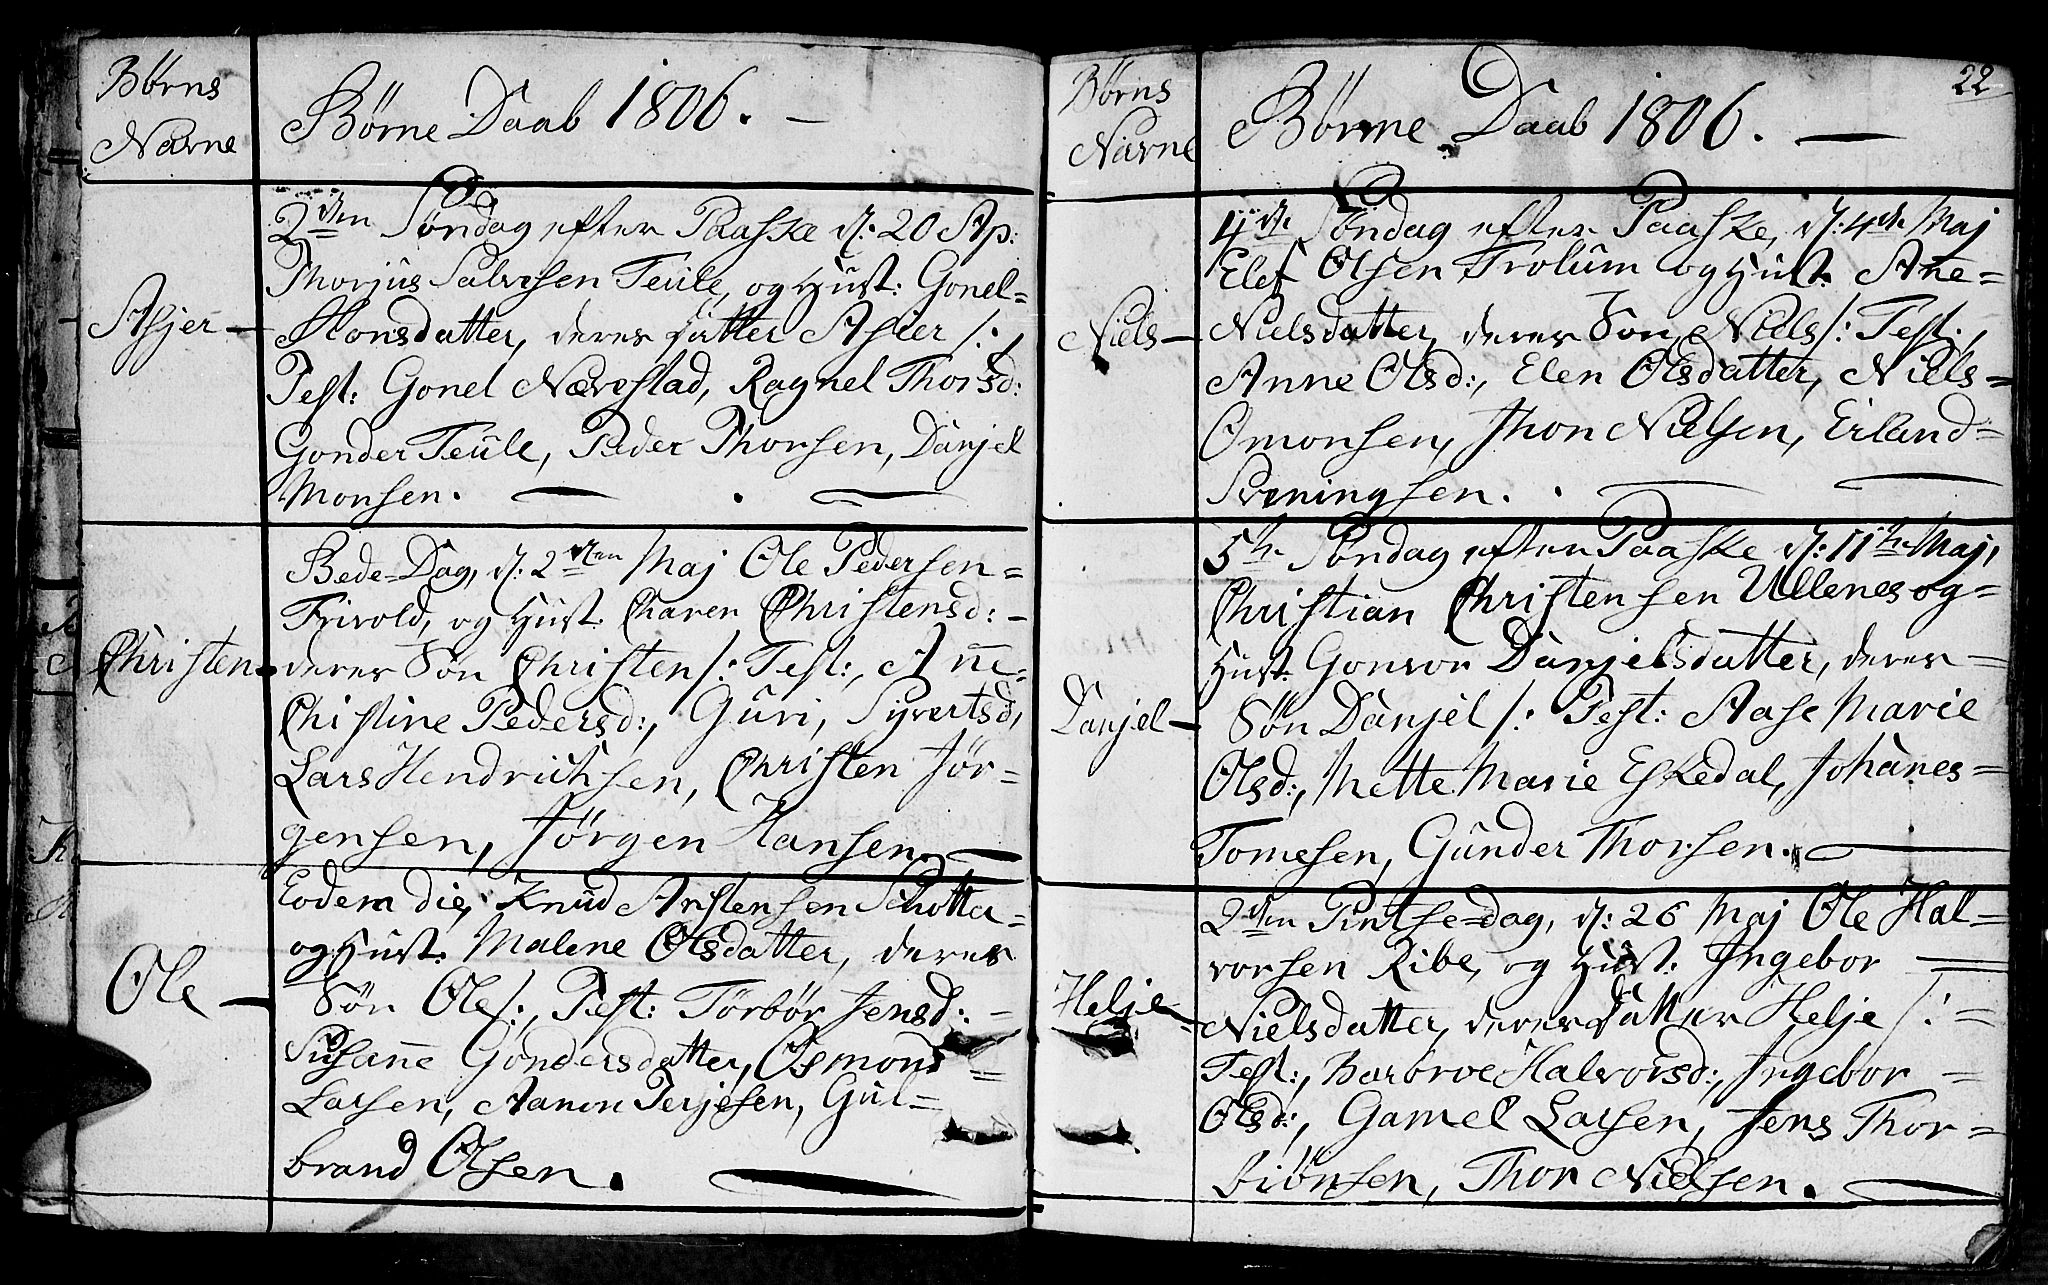 Børns
Navne
Børne Daab 1806. —
Asjer —
2den Søndag efter Paaske d: 20 Ap:
Thorjus Salvesen Teule, og Hust: Gonel=
Monsdatter, deres datter Asier /: ,
Test: Gonel Nærestad, Ragnel Thorsd:
Gonder Teule, Peder Thorsen, Danjel
Monsen.
Christen
Bede=Dag, d: 2den Maj Ole Pedersen=
Frivold, og Hust. Charen Christensd: -
deres Søn Christen /: Test:, Anne=
Chistine Pedersd:, Guri, Syvertsd,
Lars Hendrichsen, Christen Jør=
gensen, Jørgen Hansen. —
Ole —
Eodem die, Knud Aristensen Schotte=
og Hust: Malene Olsdatter, deres
Søn Ole /:, Test: Torbør Jensd: -
Susanne Gondersdatter, Osmond =
Larsen, Aanon Terjesen, Gul=
brand Olsen.
22
Børns
Navne
Børne Daab 1806. —
Niels —
4de Søndag efter Paaske, d: 4de Maj
Elef Olsen Trolum og Hust. Ane=
Nielsdatter, deres Søn Niels /: Test:,
Anne Olsd:, Elen Olsdatter, Niels=
Omonsen, Jhon Nielsen, Erland=
Sveningsen. .
Danjel —
5te Søndag efter Paaske d: 11te Maj,
Christian Christensen Ullenes og=
Hust. Gonvor Danjelsdatter, deres =
Søn Danjel /: Test: Aase Marie
Olsd:, Mette Marie Eskedal, Johanes=
Tomesen, Gunder Thorsen.
Helje —
2den Pintse=dag, d: 26 Maj Ole Hal=
vorsen Ribe, og Hust: Ingebor =
Nielsdatter, deres datter Helje /: =
Test:, Barbroe Halvorsd:, Ingebor =
Olsd:, Gamel Larsen, Jens Thor=
biönsen, Thor Nielsen.